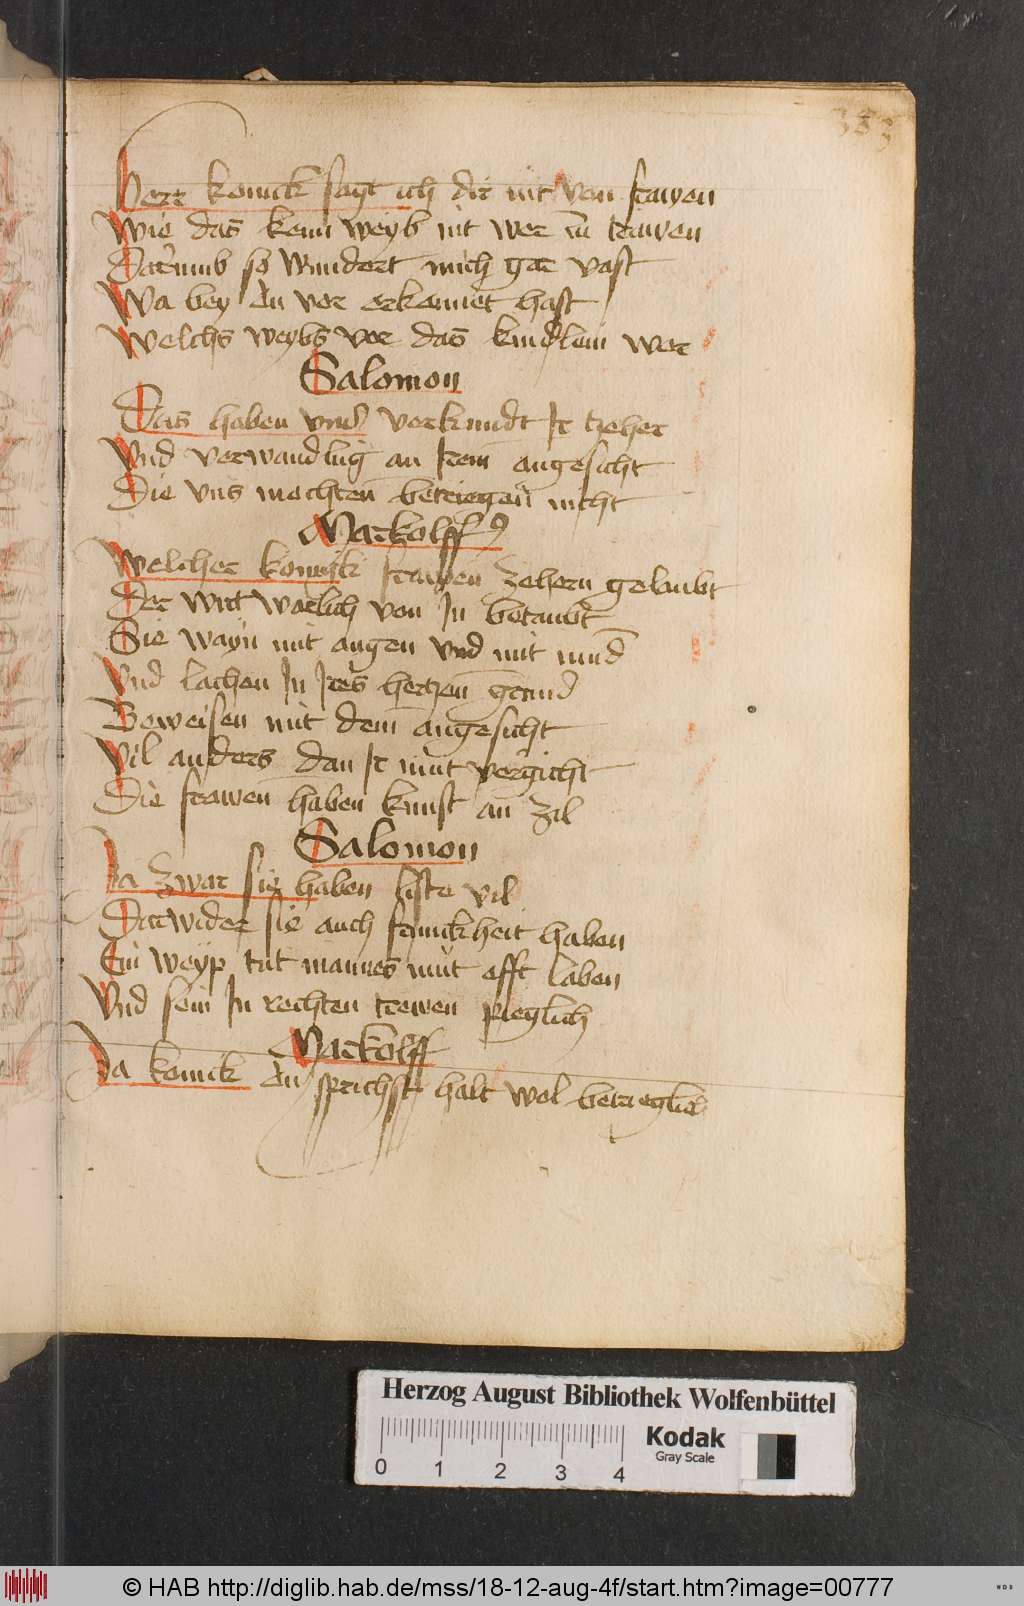 383
Herr konick sagt ich dir nit von frawen
Wie das kein weyb nit wer zu trawen
Darumb so wundert mich gar vast
Wa bey du vor erkennet hast
Welchs weybs vor das kindlein wer
Salomon
Das haben vnd verkundt Ir tzeher
Vnd verwandlung an Irem angesicht
Die vns mochten betriegen nicht
Markolff
Welcher konick frawen zehern gelaubt
Der wirt warlich von In betaubt
Sie wayn mit augen vnd mit mund
Vnd lachen In Irs hertzen grund
Beweisen mit dem angesicht
Vil anders dan Ir mut vergicht
Die frawen haben kunst an zil
Salomon
Ja zwar sie haben liste vil
Darwider sie auch frumckheit haben
Ein weyp tut mannes mut offt laben
Vnd sein In rechten trewen pleglich
Markolff
Ja konick du sprichst halt wol betrieglich
Herzog August Bibliothek Wolfenbüttel
0 1 2 3 4
Kodak
Gray Scale
© HAB http://diglib.hab.de/mss/18-12-aug-4f/start.htm?image=00777